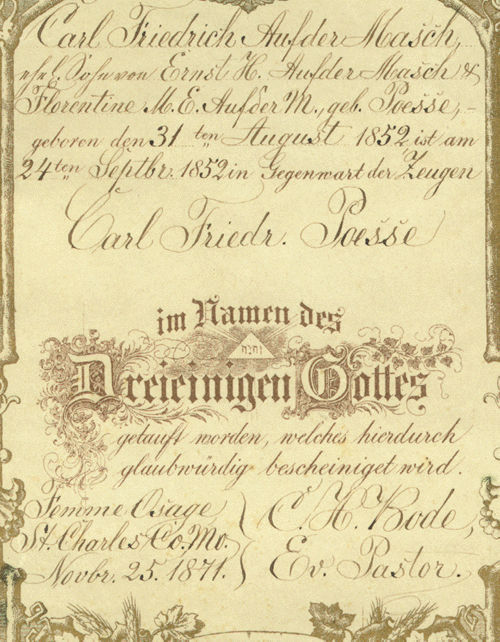 Carl Friedrich Aufder Masch,
ehel. Sohn von Ernst H. Aufder Masch &
Florentine M. E. Aufder M., geb. Poesse, –
geboren den 31ten August 1852, ist am
24ten Septbr. 1852 in Gegenwart der Zeugen
Carl Friedr. Poesse
im Namen des
יהוה
Dreieinigen Gottes
getauft worden, welches hierdurch
glaubwürdig bescheiniget wird.
Femme Osage
St. Charles Co. Mo.
Novbr. 25. 1871.
C. H. Kode,
Ev. Pastor.